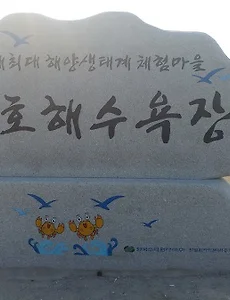 최대 해양생태계 체험마을
호해수욕장